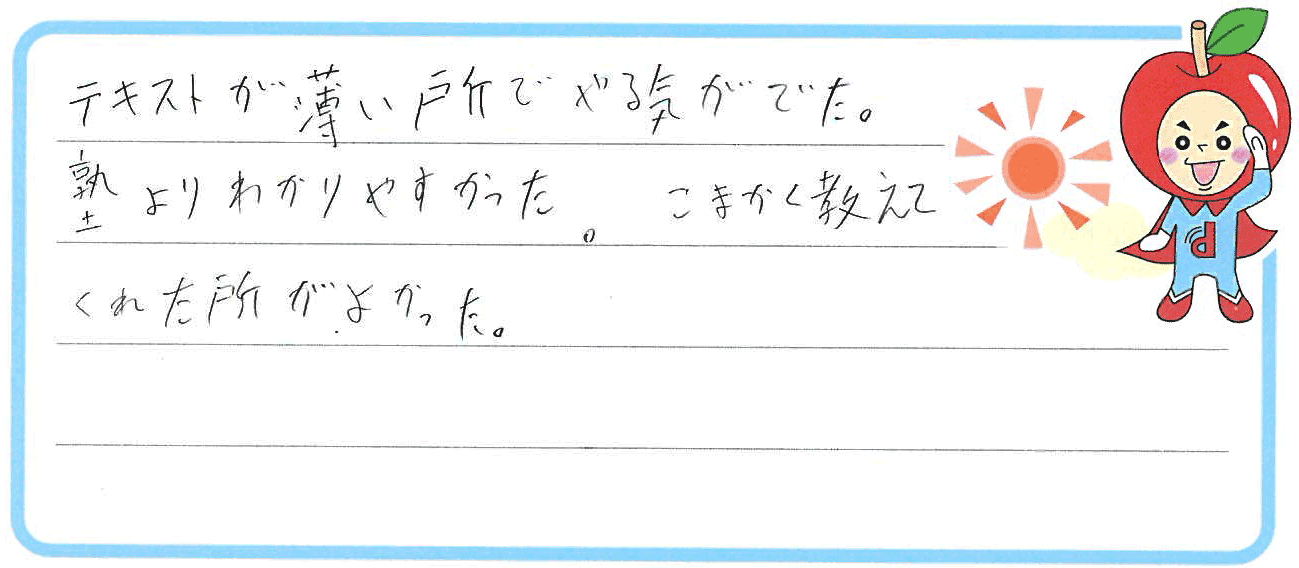 テキストが薄い所でやる気がでた。
塾よりわかりやすかった。 こまかく教えて
くれた所がよかった。